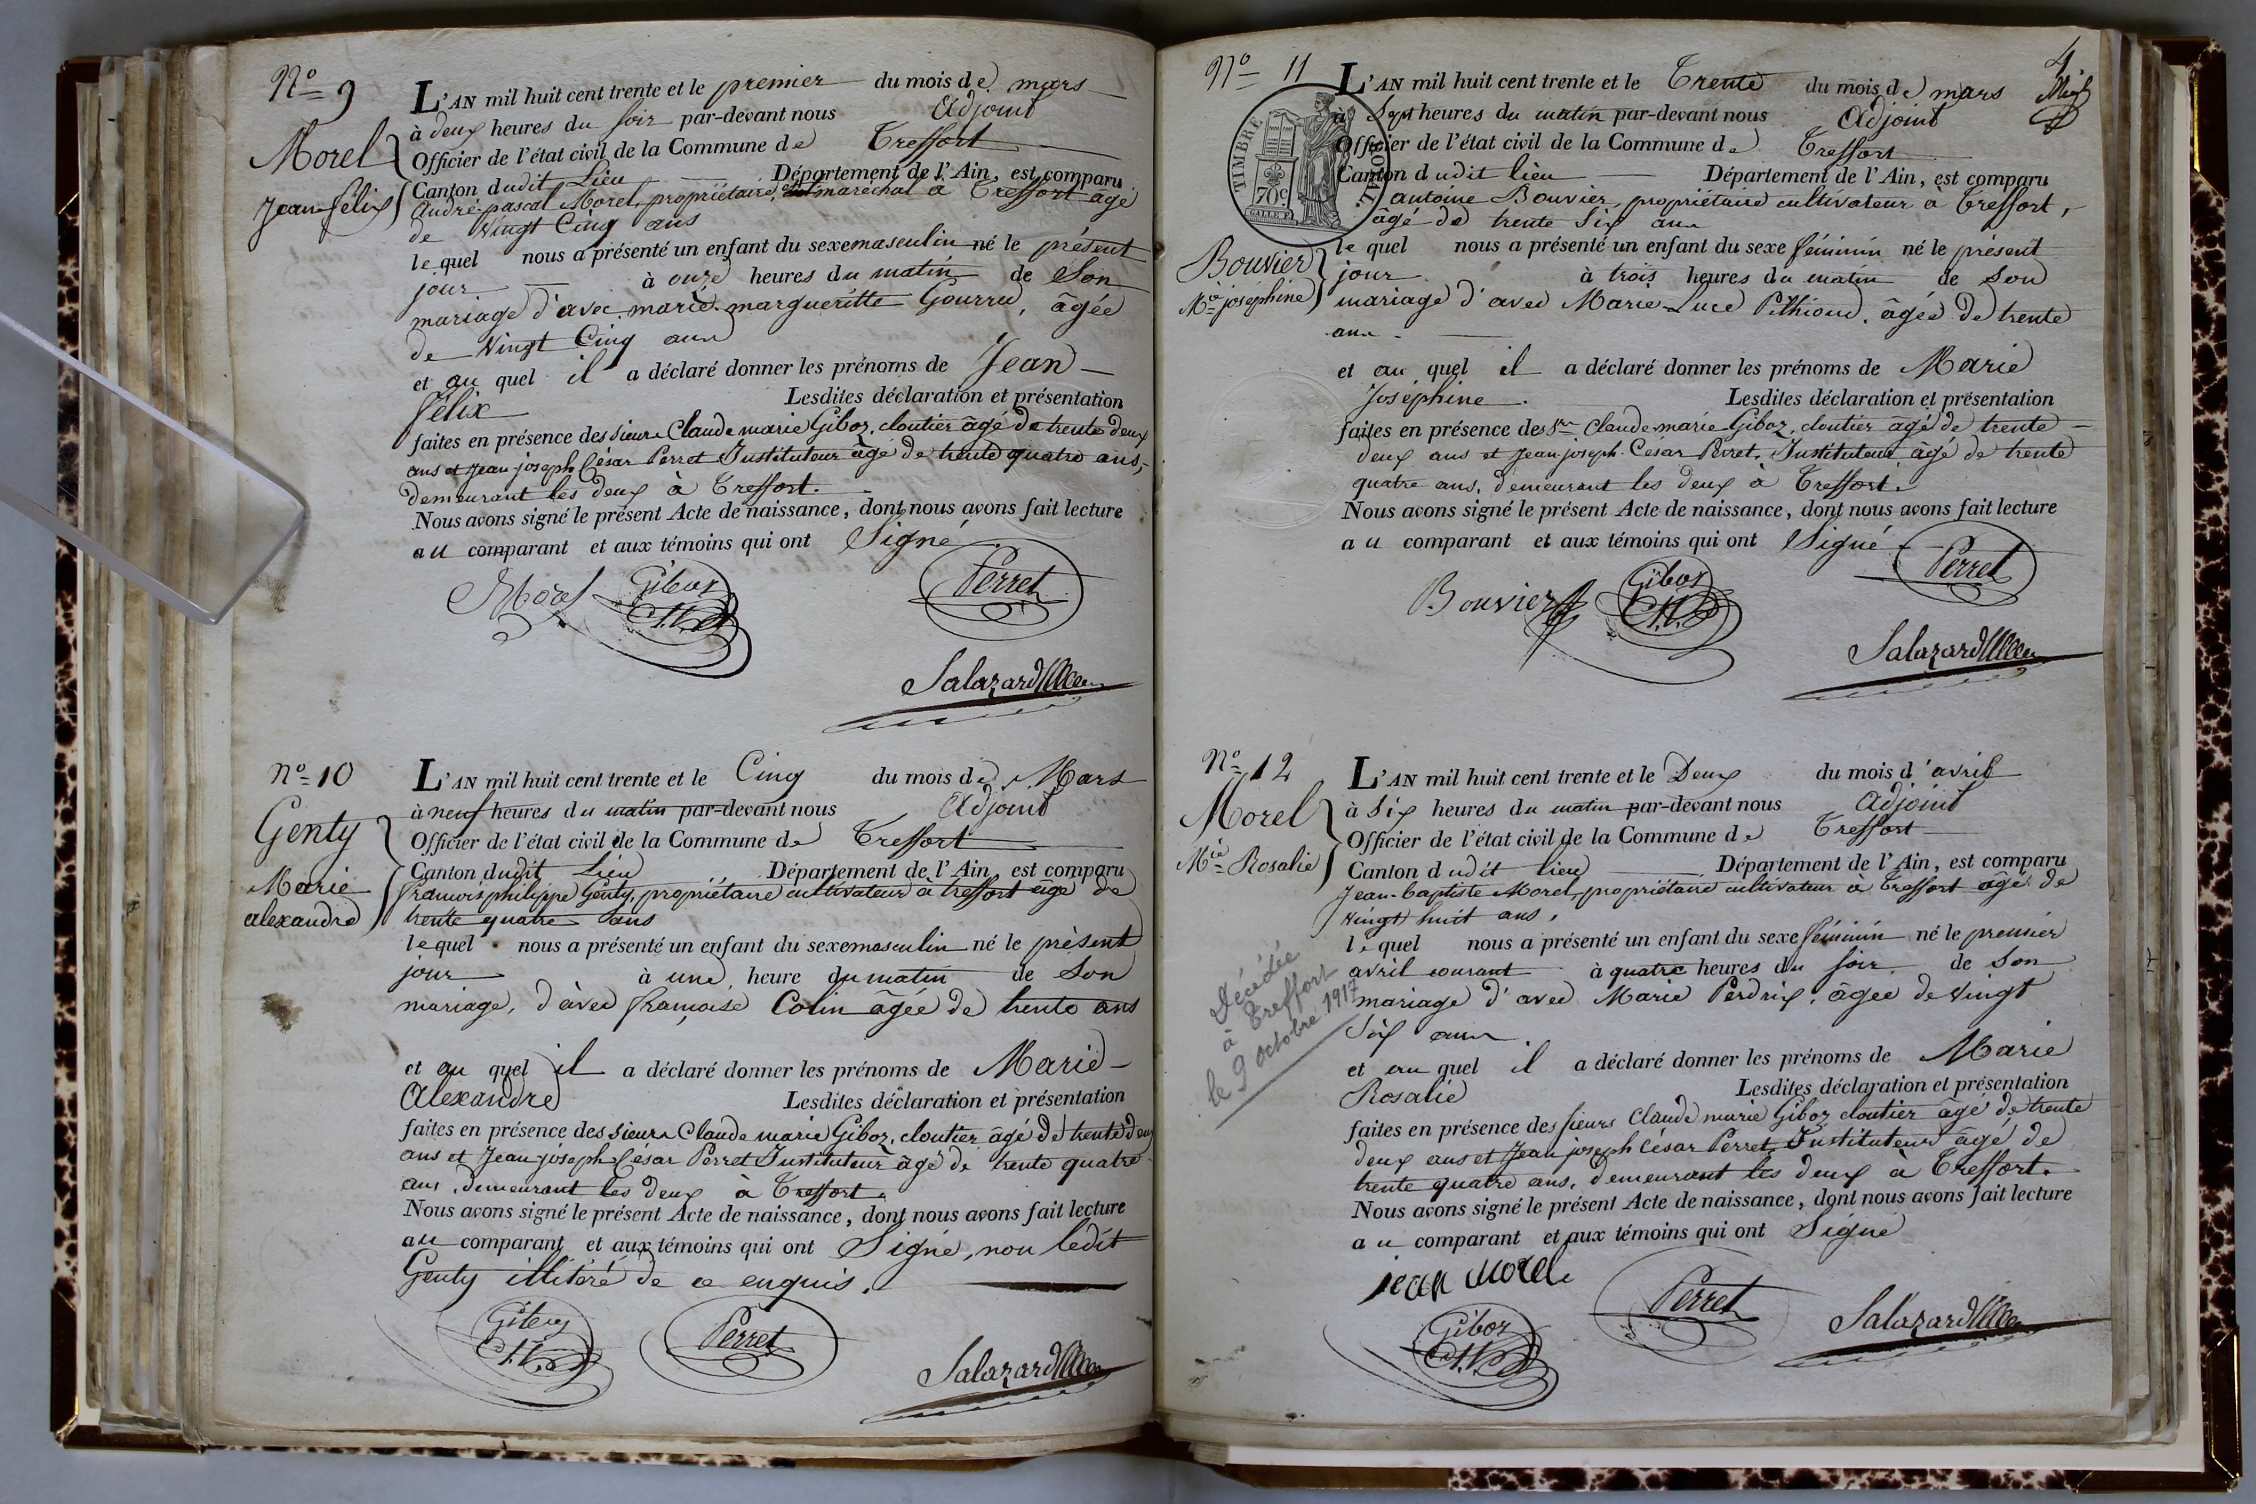 N° 9
Morel
Jean félix
L'AN mil huit cent trente et le premier du mois de mars
à deux heures du soir par-devant nous Adjoint
Officier de l'état civil de la Commune de Treffort
Canton dudit Lieu Département de l'Ain, est comparu
André pascal Morel, propriétaire, maréchal à Treffort agé
de Vingt Cinq ans
lequel nous a présenté un enfant du sexe masculin né le présent
jour à onze heures du matin de Son
mariage d'avec marie margueritte Gourru, âgée
de Vingt Cinq ans
et au quel il a déclaré donner les prénoms de Jean
félix Lesdites déclaration et présentation
faites en présence des sieurs Claude marie Giboz, cloutier âgé de trente deux
ans et Jean joseph César Perret Instituteur âgé de trente quatre ans,
demeurant les deux à Treffort.
Nous avons signé le présent Acte de naissance, dont nous avons fait lecture
au comparant et aux témoins qui ont Signé
Morel Giboz Perret
Salazard
N° 10
Genty
Marie
alexandre
L'AN mil huit cent trente et le Cinq du mois de Mars
à neuf heures du matin par-devant nous Adjoint
Officier de l'état civil de la Commune de Treffort
Canton dudit Lieu Département de l'Ain, est comparu
françois philippe Genty, propriétaire cultivateur à treffort agé de
trente quatre ans
lequel nous a présenté un enfant du sexe masculin né le présent
jour à une heure du matin de Son
mariage, d'avec françoise Colin âgée de trente ans
et au quel il a déclaré donner les prénoms de Marie
Alexandre Lesdites déclaration et présentation
faites en présence des sieurs Claude marie Giboz, cloutier âgé de trente deux
ans et Jean joseph César Perret Instituteur âgé de trente quatre
ans, demeurant les deux à Treffort.
Nous avons signé le présent Acte de naissance, dont nous avons fait lecture
au comparant et aux témoins qui ont Signé, non ledit
Genty illitéré de ce enquis.
Giboz Perret
Salazard
4
N° 11
TIMBRE ROYAL
70c
Bouvier
Mie joséphine
L'AN mil huit cent trente et le Trente du mois de mars
à Sept heures du matin par-devant nous Adjoint
Officier de l'état civil de la Commune de Treffort
Canton dudit lieu Département de l'Ain, est comparu
antoine Bouvier, propriétaire cultivateur à Treffort,
agé de trente Six ans
lequel nous a présenté un enfant du sexe féminin né le présent
jour à trois heures du matin de Son
mariage d'avec Marie Luce Pithioud, âgée de trente
ans.
et au quel il a déclaré donner les prénoms de Marie
Joséphine. Lesdites déclaration et présentation
faites en présence des srs Claude marie Giboz, cloutier âgé de trente
deux ans et Jean joseph César Perret, Instituteur âgé de trente
quatre ans, demeurant les deux à Treffort.
Nous avons signé le présent Acte de naissance, dont nous avons fait lecture
au comparant et aux témoins qui ont Signé
Bouvier Giboz Perret
Salazard
N° 12
Morel
Mie Rosalie
Décédée
à Treffort
le 9 octobre 1917
L'AN mil huit cent trente et le Deux du mois d'avril
à Six heures du matin par-devant nous Adjoint
Officier de l'état civil de la Commune de Treffort
Canton dudit lieu Département de l'Ain, est comparu
Jean-baptiste Morel, propriétaire cultivateur à Treffort âgé de
Vingt huit ans,
lequel nous a présenté un enfant du sexe féminin né le premier
avril courant à quatre heures du soir de Son
mariage d'avec Marie Perdrix, âgée de Vingt
Six ans
et au quel il a déclaré donner les prénoms de Marie
Rosalie Lesdites déclaration et présentation
faites en présence des sieurs Claude marie Giboz cloutier âgé de trente
deux ans et Jean joseph César Perret, Instituteur âgé de
trente quatre ans, demeurant les deux à Treffort.
Nous avons signé le présent Acte de naissance, dont nous avons fait lecture
au comparant et aux témoins qui ont Signé
jean morel Perret
Giboz Salazard